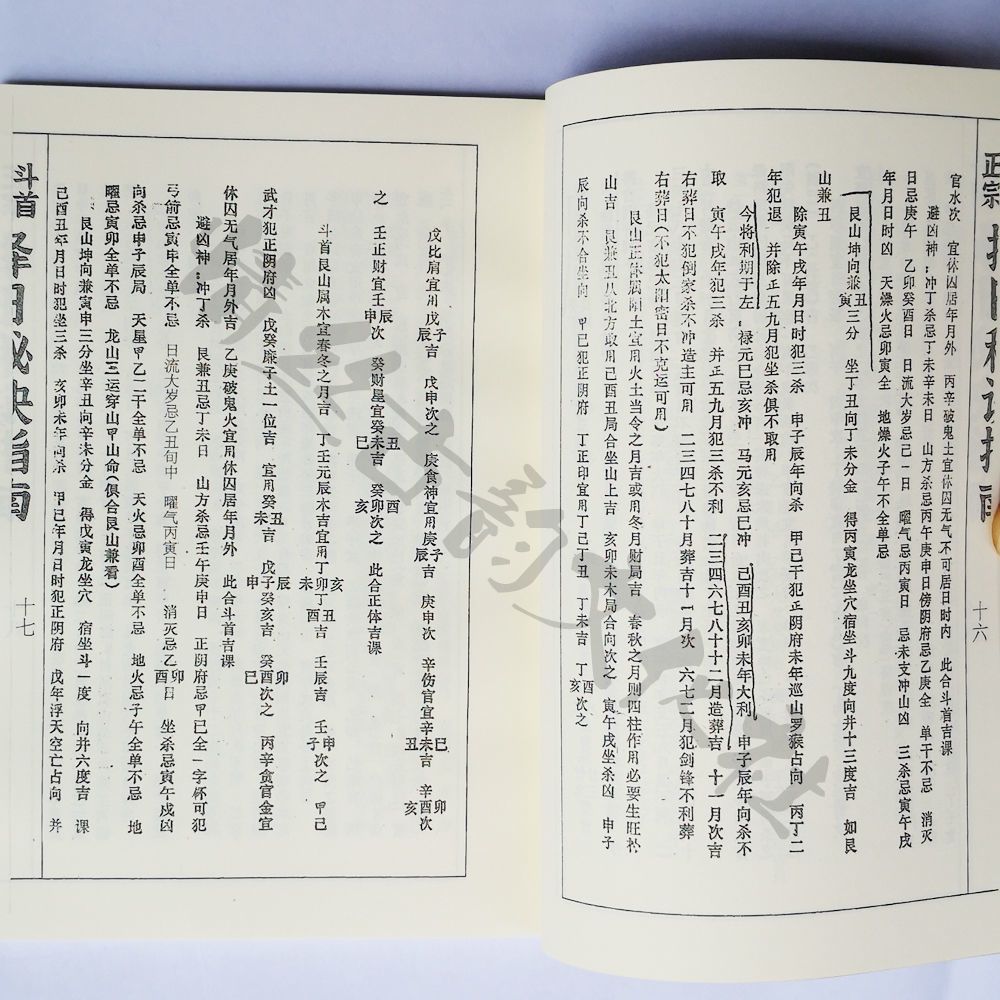 正宗
十六
官水次　宜休囚居年月外　丙辛破鬼土宜休囚无气不可居日时内　此合斗首吉课
避凶神：冲丁杀忌丁未辛未日　山方杀忌丙午庚申日傍阴府忌乙庚全　单干不忌　消灭
日忌庚午　乙卯癸酉日　日流大岁忌己一日　曜气忌丙寅日　忌未支冲山凶　三杀忌寅午戌
年月日时凶　天燥火忌卯寅全　地燥火子午不全单忌
艮山坤向兼丑寅三分　坐丁丑向丁未分金　得丙寅龙坐穴宿坐斗九度向井十三度吉　如艮
山兼丑
除寅午戌年月日时犯三杀　申子辰年向杀　甲己干犯正阴府未年巡山罗猴占向　丙丁二
年犯退　并除正五九月犯坐杀俱不取用
今将利期于左：禄元巳忌亥冲　马元亥忌巳冲　己酉丑亥卯未年大利　申子辰年向杀不
取　寅午戌年犯三杀　并正五九月犯三杀不利　二三四六七八十十二月造葬吉　十一月次吉
右葬日不犯倒家杀不冲造主可用　二三四七八十月葬吉十一月次　六七二月犯剑锋不利葬
右葬日（不犯太阳密日不克运可用）
艮山正体属阳土宜用火土当令之月吉或用冬月财局吉　春秋之月则四柱作用必要生旺扶
山吉　艮兼丑从北方取用己酉丑局合坐山上吉　亥卯未木局合向次之　寅午戌坐杀凶　申子
辰向杀不合坐向　甲己犯正阴府　丁正印宜用丁己丁丑　丁未吉　丁酉亥次之
戊比肩宜用戊子辰吉　戊申次之　庚食神宜用庚子辰吉　庚申次　辛伤官宜辛巳未丑吉　辛卯酉亥次
之　壬正财宜壬辰申次　癸财星宜癸丑未巳吉　癸酉卯亥次之　此合正体吉课
斗首艮山属木宜春冬之月吉　丁壬元辰木吉宜用丁亥卯未丁丑酉吉　壬辰吉　壬申子次之　甲己
武才犯正阴府凶　戊癸廉子土一位吉　宜用癸丑未吉　戊辰子申癸亥吉　癸卯酉巳次之　丙辛贪官金宜
休囚无气居年月外吉　乙庚破鬼火宜用休囚居年月外　此合斗首吉课
避凶神：冲丁杀　艮兼丑忌丁未日　山方杀忌壬午庚申日　正阴府忌甲已全一字杯可犯
弓箭忌寅申全单不忌　日流大岁忌乙丑旬中　曜气丙寅日　消灭忌乙卯酉日　坐杀忌寅午戌凶
向杀忌申子辰局　天星甲乙二干全单不忌　天火忌卯酉全单不忌　地火忌子午全单不忌　地
曜忌寅卯全单不忌　龙山三运穿山甲山命（俱合艮山兼看）
艮山坤向兼寅申三分坐辛丑向辛未分金　得戊寅龙坐穴　宿坐斗一度　向井六度吉　课
己酉丑年月日时犯坐三杀　亥卯未年向杀　甲己年月日时犯正阴府　戊年浮天空亡占向　并
斗首择日秘诀指南
十七